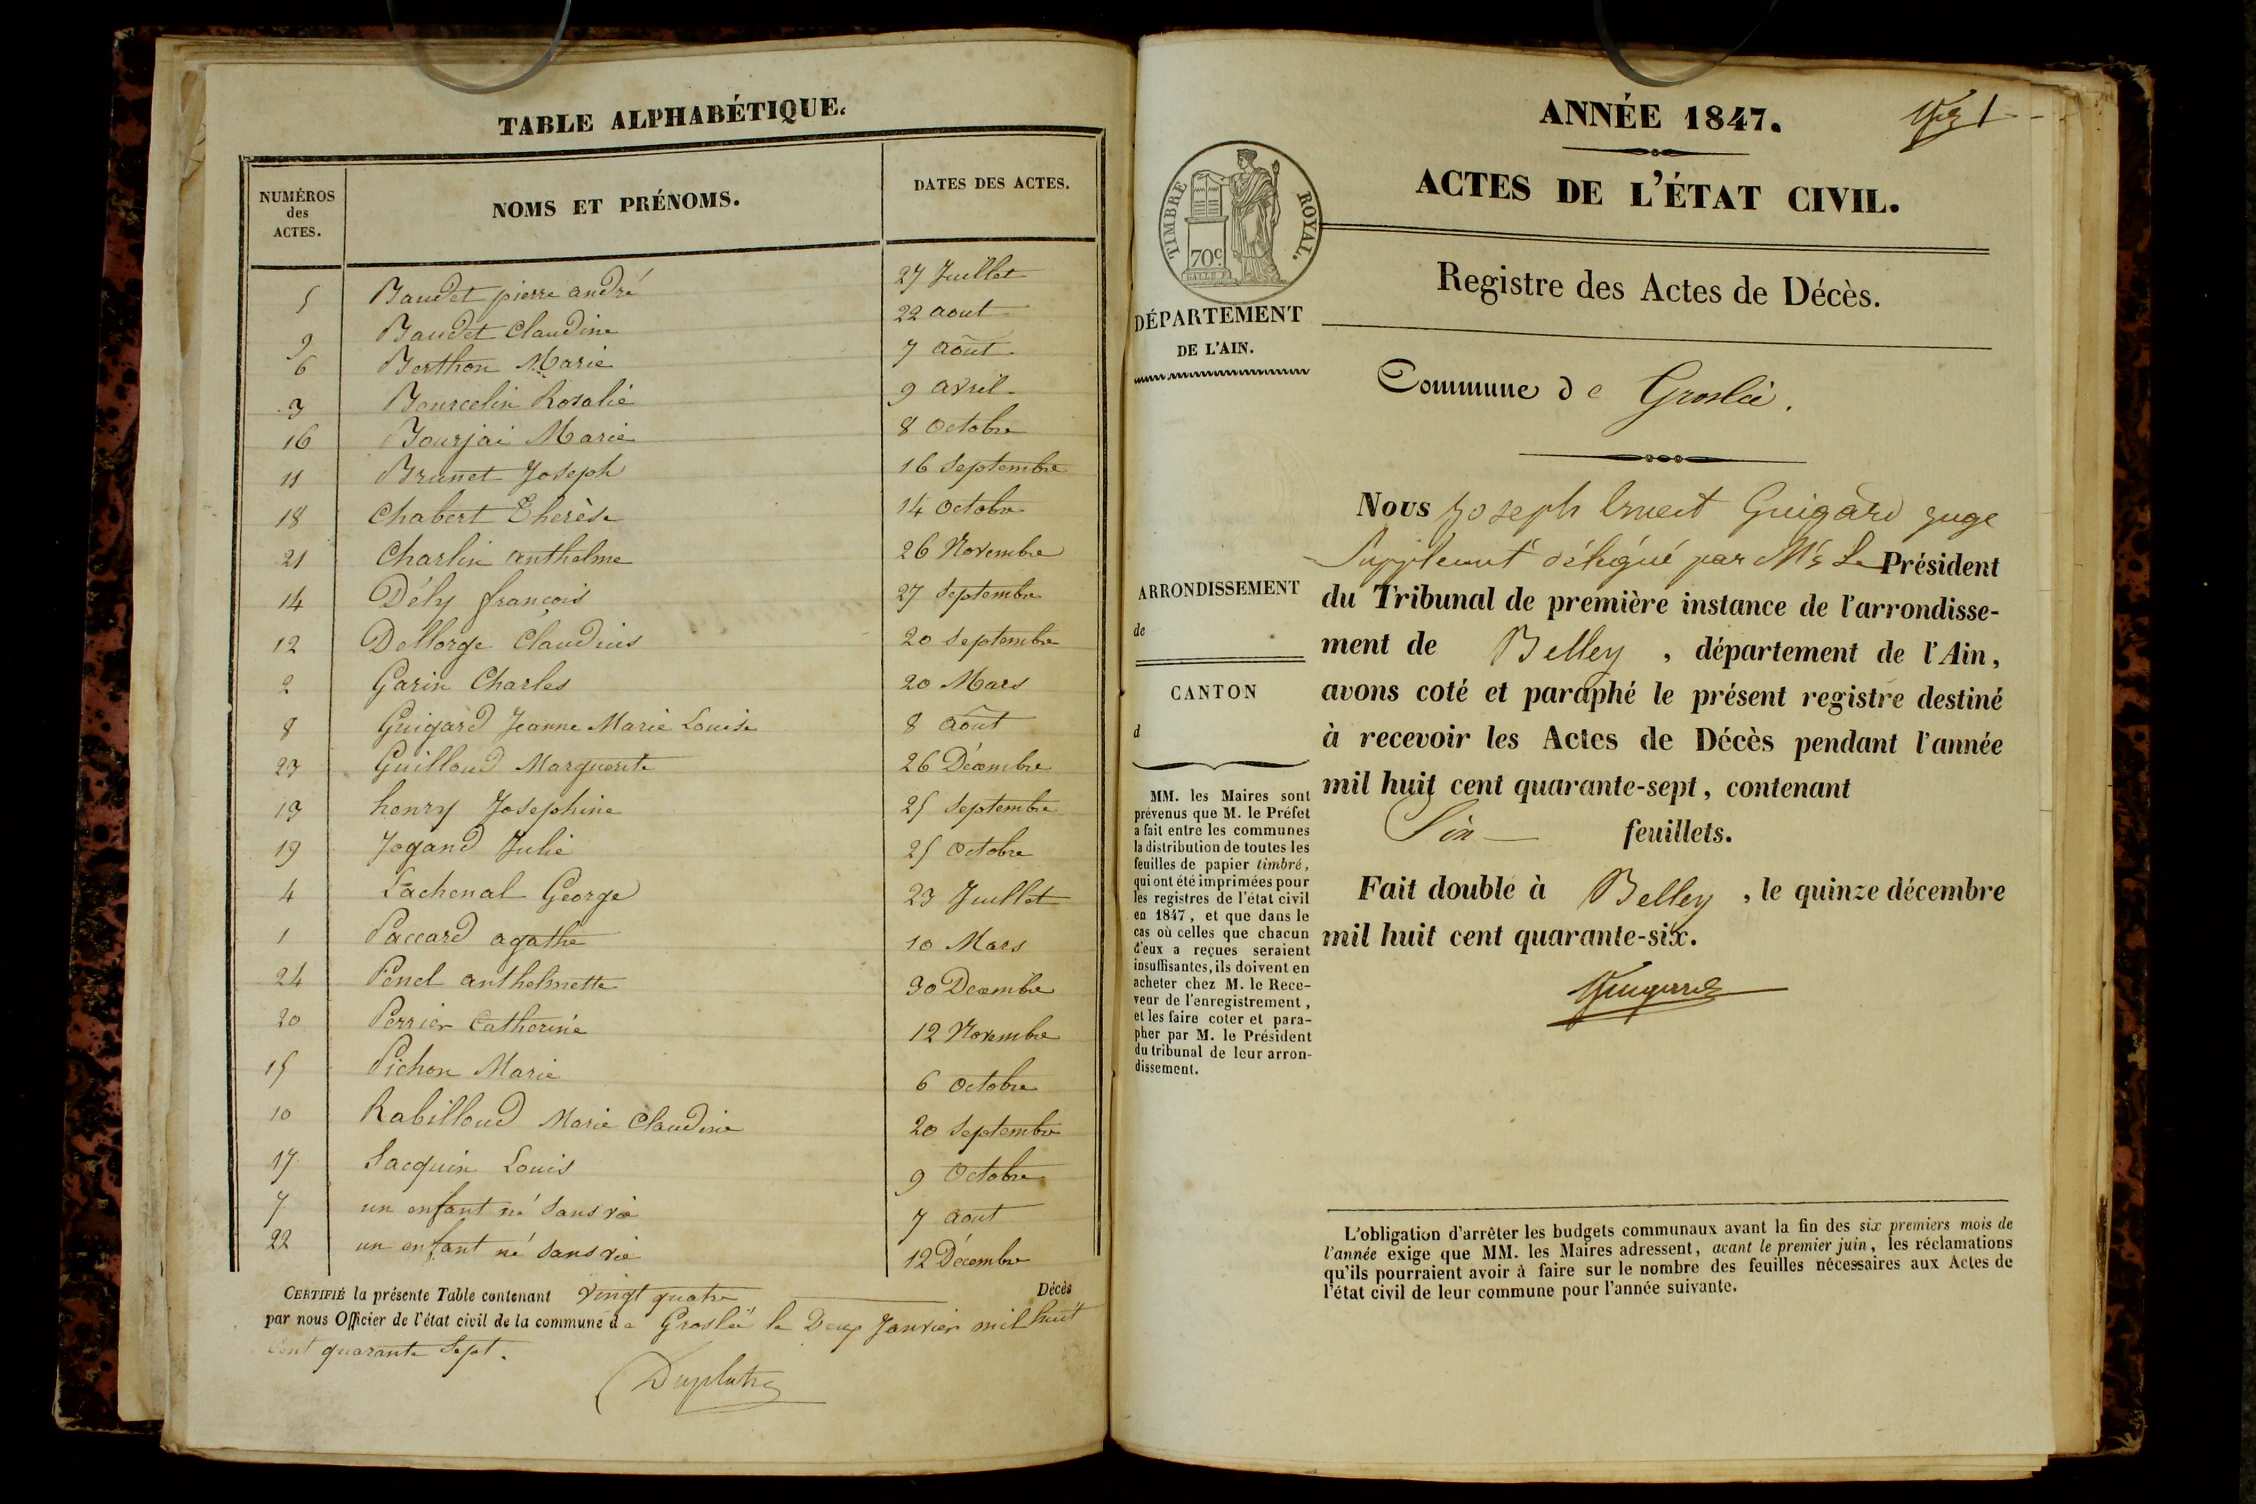 TABLE ALPHABÉTIQUE.
NUMÉROS des ACTES. NOMS ET PRÉNOMS. DATES DES ACTES.
5 Baudet pierre andré 27 Juillet
9 Baudet Claudine 22 aout
6 Berthon Marie 7 août
3 Bourcelin Rosalie 9 avril
16 Bourjai Marie 8 Octobre
11 Brunet Joseph 16 Septembre
18 Chabert Thérèse 14 Octobre
21 Charlin anthelme 26 Novembre
14 Dély françois 27 Septembre
12 Dellorge Claudius 20 Septembre
2 Garin Charles 20 Mars
8 Guigard Jeanne Marie Louise 8 août
23 Guilloud Marguerite 26 Décembre
13 henry Josephine 25 Septembre
19 Jogand Julie 25 Octobre
4 Lachenal George 23 Juillet
1 Paccard agathe 10 Mars
24 Penel anthelmette 30 Decembre
20 Perrier Catherine 12 Novembre
15 Pichon Marie 6 Octobre
10 Rabilloud Marie Claudine 20 Septembre
17 Sacquin Louis 9 Octobre
7 un enfant né sans vie 7 aout
22 un enfant né sans vie 12 Décembre
CERTIFIÉ la présente Table contenant vingt quatre Décès
par nous Officier de l'état civil de la commune de Groslée le Deux Janvier mil huit
cent quarante Sept.
ANNÉE 1847.
1
ACTES DE L'ÉTAT CIVIL.
TIMBRE ROYAL.
70c
Registre des Actes de Décès.
DÉPARTEMENT
DE L'AIN.
Commune de Groslée.
ARRONDISSEMENT
de
CANTON
d
MM. les Maires sont
prévenus que M. le Préfet
a fait entre les communes
la distribution de toutes les
feuilles de papier timbré,
qui ont été imprimées pour
les registres de l'état civil
en 1847, et que dans le
cas où celles que chacun
d'eux a reçues seraient
insuffisantes, ils doivent en
acheter chez M. le Rece-
veur de l'enregistrement,
et les faire coter et para-
pher par M. le Président
du tribunal de leur arron-
dissement.
Nous Joseph Ernest Guigard Juge
Suppleant délégué par Mr Le Président
du Tribunal de première instance de l'arrondisse-
ment de Belley, département de l'Ain,
avons coté et paraphé le présent registre destiné
à recevoir les Actes de Décès pendant l'année
mil huit cent quarante-sept, contenant
Six feuillets.
Fait double à Belley, le quinze décembre
mil huit cent quarante-six.
Guigard
L'obligation d'arrêter les budgets communaux avant la fin des six premiers mois de
l'année exige que MM. les Maires adressent, avant le premier juin, les réclamations
qu'ils pourraient avoir à faire sur le nombre des feuilles nécessaires aux Actes de
l'état civil de leur commune pour l'année suivante.